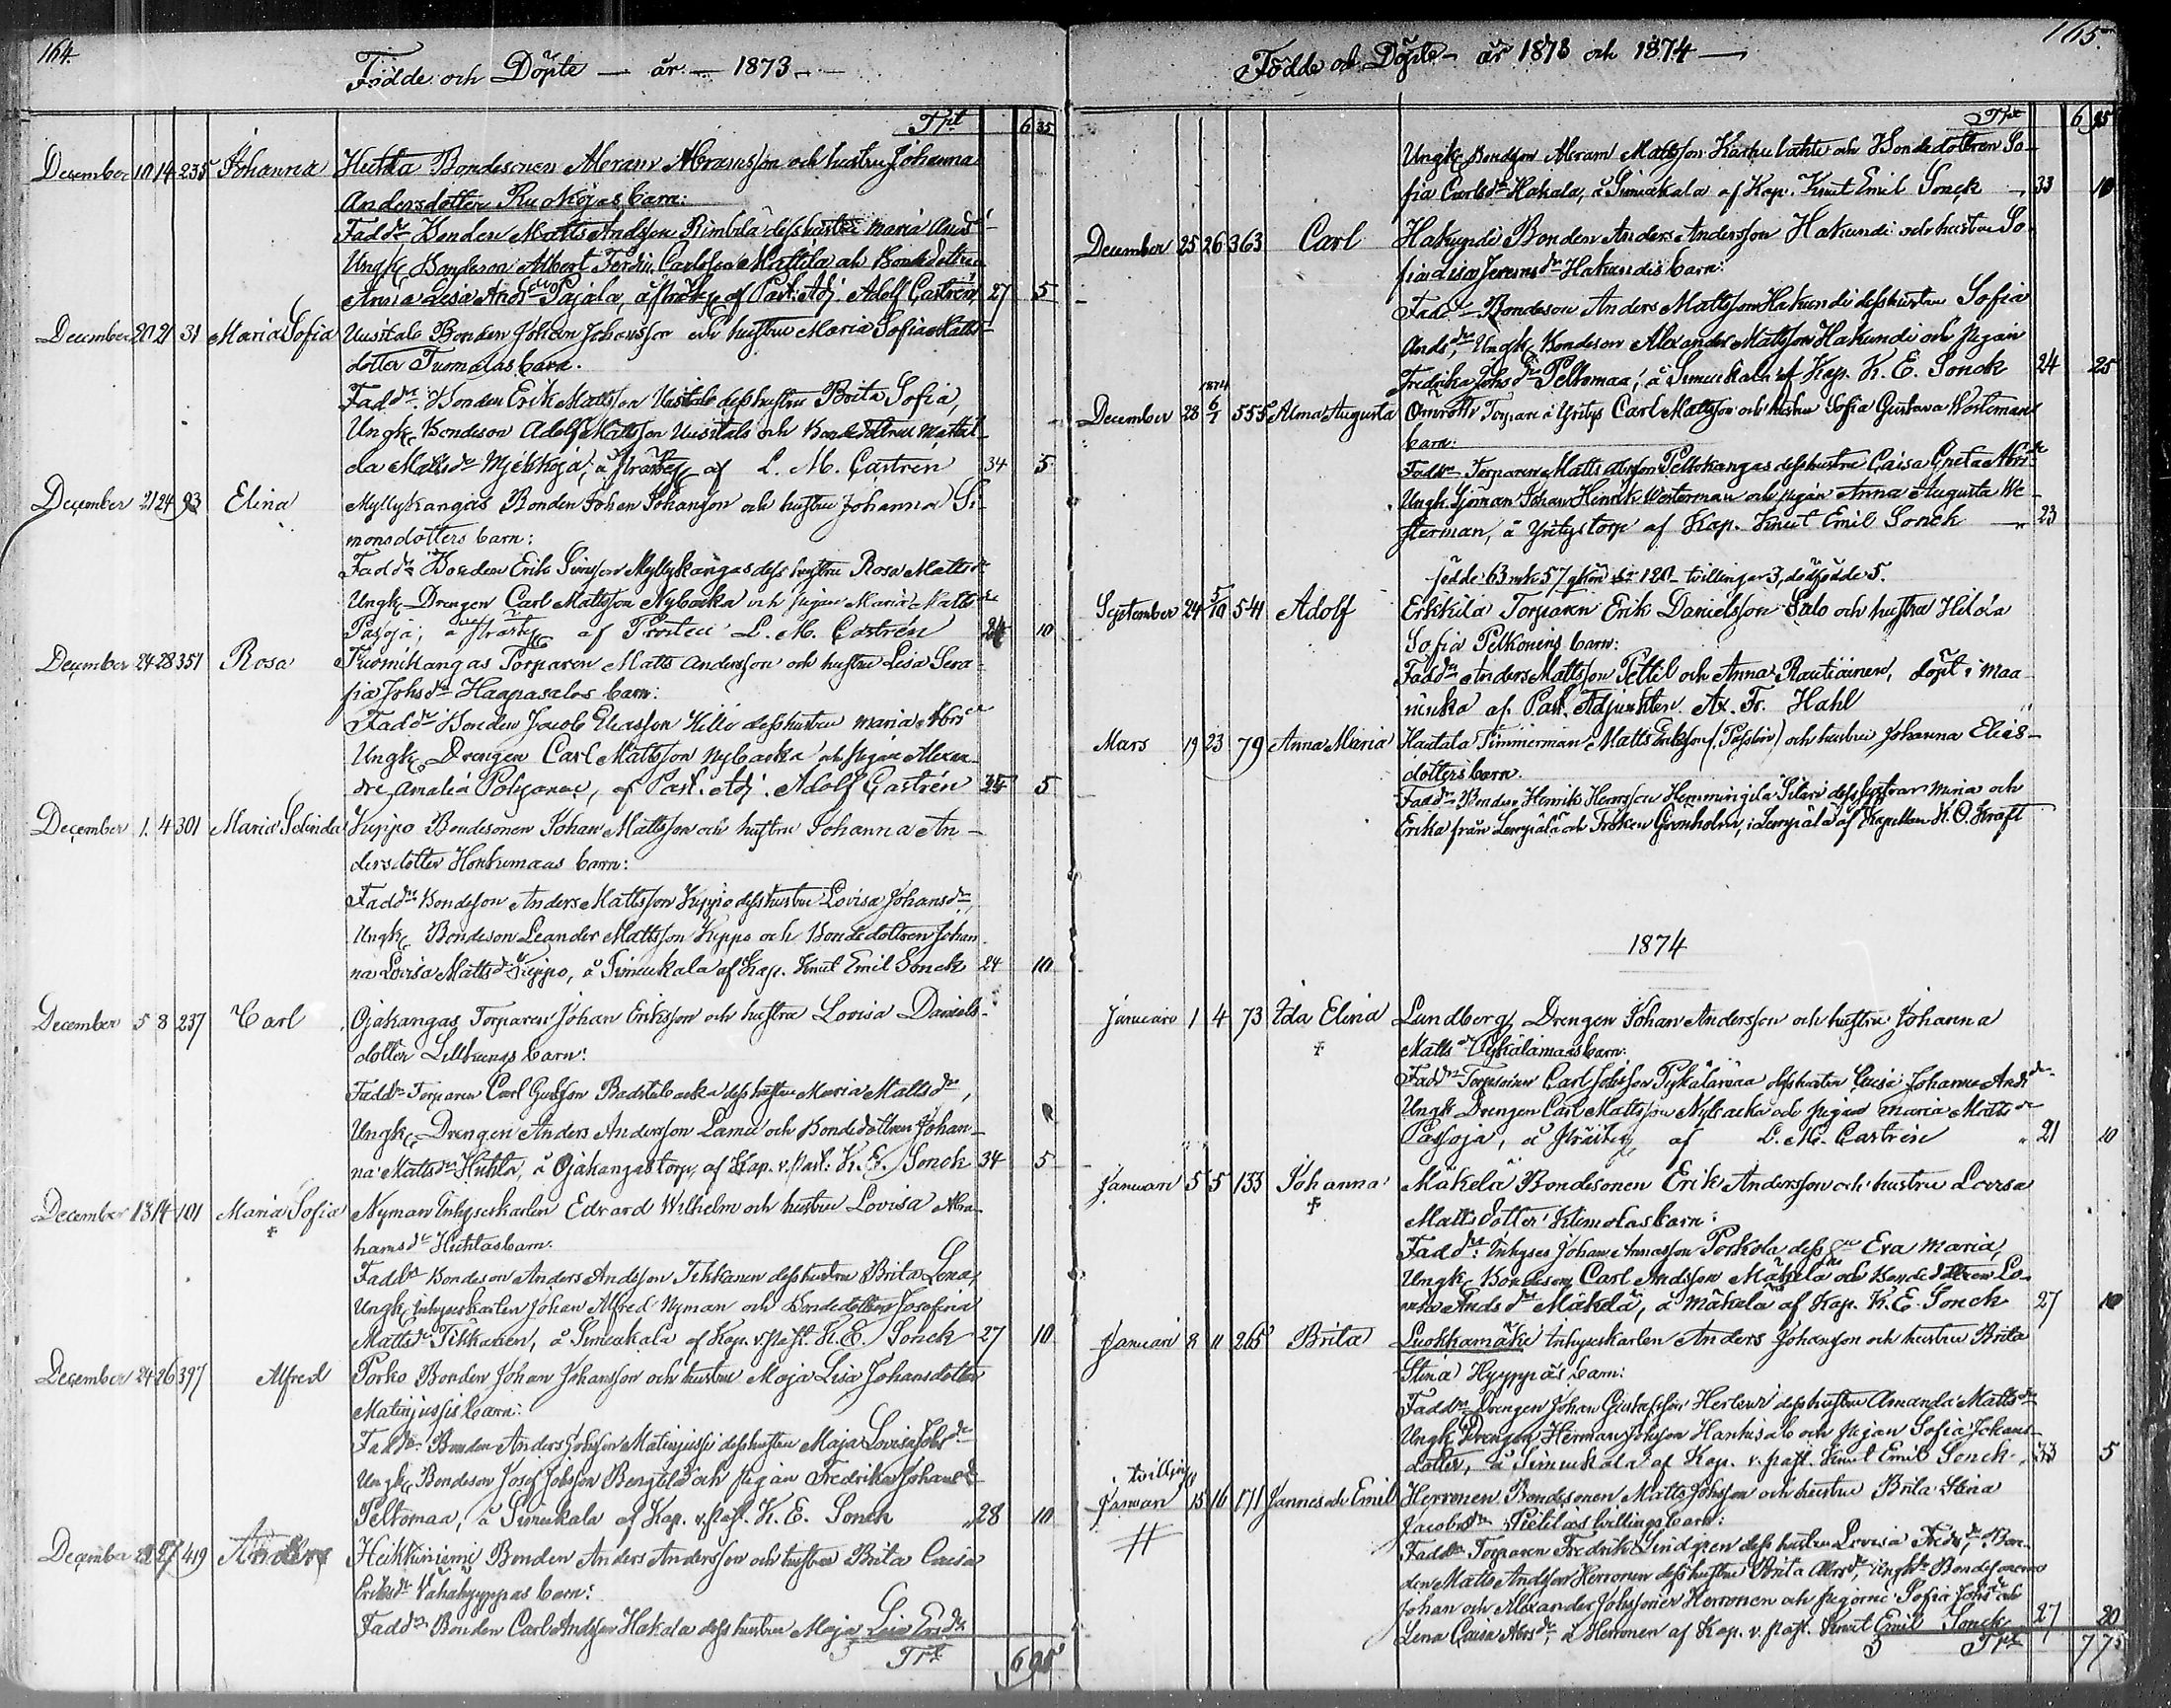 164.
Födde och Döpte — år — 1873 —
Trpt 6 35
December 10 14 235 Johanna Huhta Bondesonen Abram Abramsson och hustru Johanna
Andersdotter Ruokojas barn:
Fadd. Bonden Matts Andsson Rimbilä dess hustru Maria Ands
Ungk. Bondeson Albert Ferdin. Carlsson Mattila och Bondedottren
Anna Lisa Ands dr Pajala, å prästg. af Past. Adj. Adolf Castrén 27 5
December 20 21 31 Maria Sofia Uusitalo Bonden Johan Johansson och hustru Maria Sofia Matts
dotter Tuomalas barn.
Fadd. Bonden Erik Mattsson Uusitalo dess hustru Brita Sofia,
Ungk. Bondeson Adolf Mattsson Uusitalo och Bondedottren Mathil
da Matts dr Myllykoja, å prästg. af L. M. Castrén 34 5
December 21 24 93 Elina Myllykangas Bonden Johan Johansson och hustru Johanna Si-
monsdotters barn:
Fadd. Bonden Erik Simsson Myllykangas dess hustru Rosa Matts dr
Ungk. Drengen Carl Mattsson Nybacka och pigan Maria Matts dr
Pasoja, å prästg. af Prosten L. M. Castrén 24 10
December 24 28 351 Rosa Tuomikangas Torparen Matts Andersson och hustru Lisa Sera-
fia Johs dr Haapasalos barn:
Fadd. Bonden Jacob Eliasson Hilli dess hustru Maria Abr. dr
Ungk. Drengen Carl Mattsson Nybacka och pigan Alexan-
dra Amalia Pohjanen, af Past. Adj. Adolf Castrén 25 5
December 1. 4 301 Maria Selinda Kippo Bondesonen Johan Mattsson och hustru Johanna An-
dersdotter Honkumaas barn:
Fadd. Bondeson Anders Mattsson Kippo dess hustru Lovisa Johans dr,
Ungk. Bondeson Leander Mattsson Kippo och Bondedottren Johan
na Lovisa Matts dr Kippo, å Simukala af Kap. Knut Emil Sonck 24 10
December 5 8 237 Carl Ojakangas Torparen Johan Eriksson och hustru Lovisa Daniels-
dotter Lillkungs barn:
Fadd. Torparen Carl Gustsson Badstubacka dess hustru Maria Matts dr,
Ungk. Drengen Anders Andersson Lama och Bondedottren Johan-
na Matts dr Huhta, å Ojakangas torp, af Kap. v. past. K. E. Sonck 34 5
December 13 14 101 Maria Sofia + Nyman Inhyseskarlen Edvard Wilhelm och hustru Lovisa Abra-
hams dr Huhtas barn.
Fadd. Bondeson Anders Andsson Tikkanen dess hustru Brita Lena,
Ungk. Inhyseskarlen Johan Alfred Nyman och Bondedottren Josefina
Matts dr Tikkanen, å Simukala af Kap. v. past. K. E. Sonck 27 10
December 24 26 397 Alfred Porko Bonden Johan Johansson och hustru Maja Lisa Johansdotter
Matinjussis barn:
Fadd. Bonden Anders Johsson Matinjussi dess hustru Maja Lovisa Johs dr
Ungk. Bondeson Josef Johsson Bengtilä och pigan Fredrika Johans d
Peltomaa, å Simukala af Kap. v. past. K. E. Sonck „ 28 10
December 23 27 419 Anders Heikkiniemi Bonden Anders Andersson och hustru Brita Caisa
Eriks dr Vähähyyppäs barn:
Fadd. Bonden Carl Andsson Hakala dess hustru Maja Lisa Ers dr
Trpt 6 95
165.
Födde och Döpte — år 1873 och 1874 —
Trpt 6 95
Ungk. Bondson Abram Mattsson Karhulahti och Bondedottren So-
fia Carls dr Hakala, å Simukala af Kap. Knut Emil Sonck 33 10
December 25 26 363 Carl Hakundi Bonden Anders Andersson Hakundi och hustru So-
fia Lisa Jerems dr Hakundis barn:
Fadd. Bondeson Anders Mattsson Hakundi dess hustru Sofia
Ands dr, Ungk. Bondeson Alexander Mattsson Hakundi och pigan
Fredrika Johs dr Peltomaa, å Simukala af Kap. K. E. Sonck 24 25
December 28 1874 6/1 555 Alma Augusta Torpare å Yritys Carl Mattsson och hustru Sofia Gustava Westermans
barn:
Fadd. Torparen Matts Abrsson Peltokangas dess hustru Caisa Greta Abrs dr
Ungk. Sjöman Johan Henrik Westerman och pigan Anna Augusta We-
sterman, å Yritys torp af Kap. Knut Emil Sonck — „ 23
födde 63 mk 57 qkön 120 tvillingar 3, dödfödde 5.
September 24 5/10 541 Adolf Erkkilä Torparen Erik Danielsson Salo och hustru Hilda
Sofia Pelkonens barn:
Fadd. Anders Mattsson Pettil och Anna Rautiainen, döpt i Maa-
ninka af Past. Adjunkten Ax. Fr. Hahl
Mars 19 23 79 Anna Maria Hautala Timmerman Matts Eriksson (Passlöv) och hustru Johanna Elias-
dotters barn.
Fadd. Bonden Henrik Hermsson Hemmingilä Silari dess systrar Maria och
Erika från Lempälä och Fröken Grönholm, i Lempälä af Kapellan K. O. Kraft
1874
Januari 1 4 73 Ida Elina + Lundberg Drengen Johan Andersson och hustru Johanna
Matts dr Pykälämaas barn:
Fadd. Torparen Carl Johsson Pykälämaa dess hustru Caisa Johanna Ands dr
Ungk. Drengen Carl Mattsson Nybacka och pigan Maria Matts dr
Passoja, å prästg. af L. M. Castrén „ 21 10
Januari 5 5 133 Johanna + Mäkelä Bondesonen Erik Andersson och hustru Lovisa
Matts dotter Klemolas barn:
Fadd. Inhyses Johan Annasson Porkola dess hu Eva Maria,
Ungk. Bondeson Carl Andsson Mäkelä och Bondedottren Lo-
visa Ands dr Mäkelä, å Mäkelä af Kap. K. E. Sonck 27 10
Januari 8 11 265 Brita Luokkamäki Inhyseskarlen Anders Johansson och hustru Brita
Stina Hyyppäs barn:
Fadd. Drengen Johan Gustafsson Herlevi dess hustru Amanda Matts dr
Ungk. Drengen Herman Johsson Hankisalo och pigan Sofia Johans-
dotter, å Simukala af Kap. v. past. Knut Emil Sonck 33 5
tvilling
Januari 15 16 171 Jannes och Emil Herronen Bondesonen Matts Johsson och hustru Brita Stina
Jacobs dr Pietiläs tvillings barn:
Fadd. Torparen Fredrik Lindgren dess hustru Lovisa Fredr. dr, Bon-
den Matts Andsson Herronen dess hustru Brita Abrs dr, Ungk. Bondesönerna
Johan och Alexander Johssöner Herronen och pigorna Sofia Johs dr och
Lena Caisa Abrs dr, å Herronen af Kap. v. past. Knut Emil Sonck 27 20
Trpt 7 75